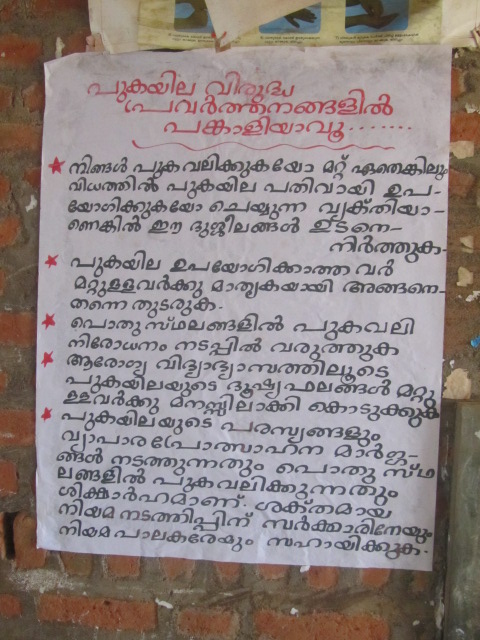 പുകയില വിരുദ്ധ
പ്രവർത്തനങ്ങളിൽ
പങ്കാളിയാവൂ.......
★ നിങ്ങൾ പുകവലിക്കുകയോ മറ്റ് ഏതെങ്കിലും
വിധത്തിൽ പുകയില പതിവായി ഉപ-
യോഗിക്കുകയോ ചെയ്യുന്ന വ്യക്തിയാ-
ണെങ്കിൽ ഈ ദുശ്ശീലങ്ങൾ ഉടനെ-
നിർത്തുക.
★ പുകയില ഉപയോഗിക്കാത്തവർ
മറ്റുള്ളവർക്കു മാതൃകയായി അങ്ങനെ-
തന്നെ തുടരുക.
★ പൊതുസ്ഥലങ്ങളിൽ പുകവലി
നിരോധനം നടപ്പിൽ വരുത്തുക
★ ആരോഗ്യ വിദ്യാഭ്യാസത്തിലൂടെ
പുകയിലയുടെ ദൂഷ്യഫലങ്ങൾ മറ്റു
ള്ളവർക്കു മനസ്സിലാക്കി കൊടുക്കുക
★ പുകയിലയുടെ പരസ്യങ്ങളും
വ്യാപാര പ്രോത്സാഹന മാർഗ്ഗ-
ങ്ങൾ നടത്തുന്നതും പൊതു സ്ഥ
ലങ്ങളിൽ പുകവലിക്കുന്നതും
ശിക്ഷാർഹമാണ്. ശക്തമായ
നിയമ നടത്തിപ്പിന് സർക്കാരിനേയും
നിയമപാലകരേയും സഹായിക്കുക.